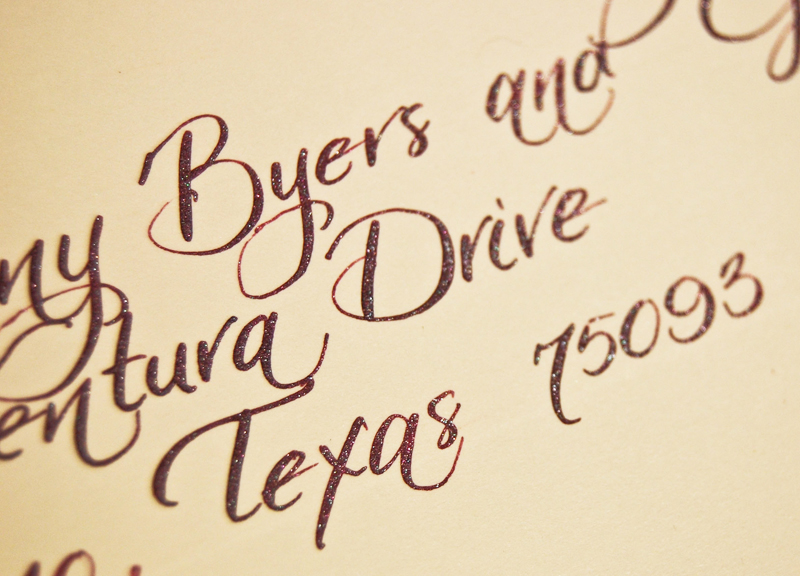 ny Byers and
entura Drive
Texas 75093